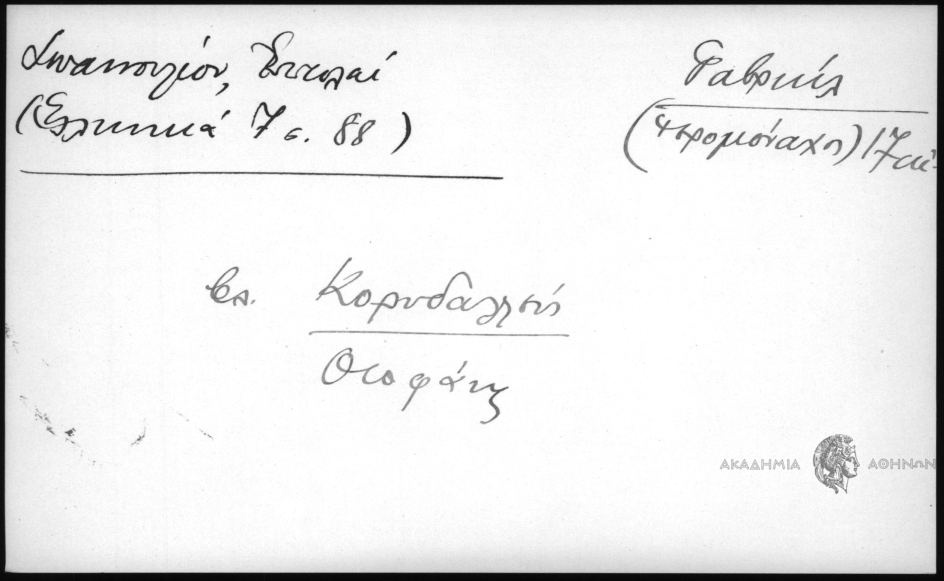 Σπανούλιον, Ἐντολαί
(Ἑλληνικά 7 σ. 88)
Γαβριήλ
(ἱερομόναχος) 17 αἰ.
βλ. Κορυδαλλεύς
Θεοφάνης
ΑΚΑΔΗΜΙΑ ΑΘΗΝΩΝ